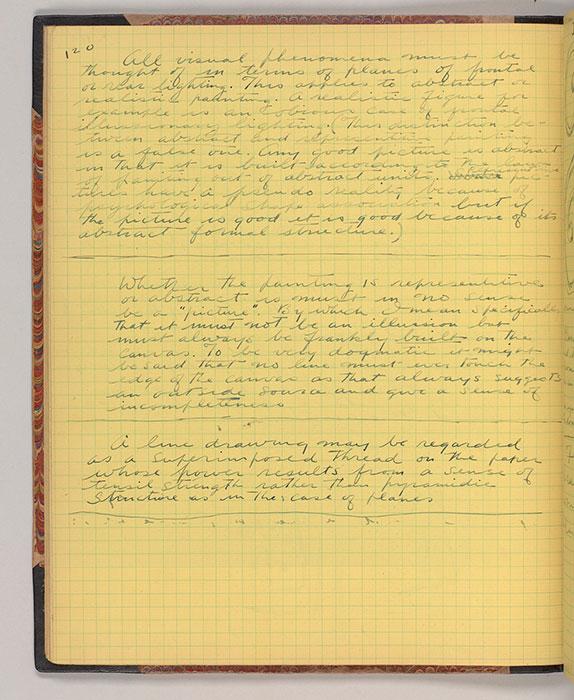 120
All visual phenomena must be
thought of in terms of planes of frontal
or rear lighting. This applies to abstract or
realistic painting. A realistic figure for
example is an obvious case of frontal
illusionary lighting. (This distinction be-
tween abstract and representative painting
is a false one. Any good picture is abstract
in that it is built according to the
of painting out of abstract units. pic-
tures have a pseudo reality because of
psychological shape association but if
the picture is good it is good because of its
abstract formal structure.)
Whether the painting is representitive
or abstract is must in no sense
be a "picture". By which I mean specifically
that it must not be an illusion but
must always be frankly built on the
canvas. To be very dogmatic it might
be said that no line must ever touch the
edge of the canvas as that always suggests
an outside source and give a sense of
incompleteness
A line drawing may be regarded
as a superimposed thread on the paper
whose power results from a sense of
tensil strength rather than pyramidic
structure as in the case of planes